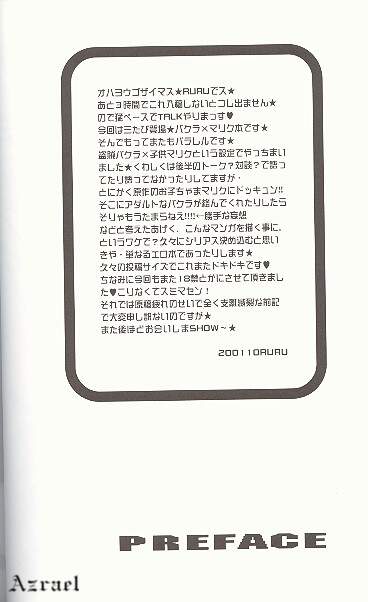 オハヨウゴザイマス★RURUでス★
あと3時間でこれ入稿しないとコレ出ません★
ので猛ペースでTALKやりまっす♥
今回は三たび登場★バクラ×マリク本です★
そんでもってまたもパラレルです★
盗賊バクラ×子供マリクという設定でやっちまい
ました★くわしくは後半のトーク?対談?で語っ
てたり語ってなかったりしてますが・
とにかく原作のお子ちゃまマリクにドッキュン!!
そこにアダルトなバクラが絡んでくれたりしたら
そりゃもうたまらねえ!!!←勝手な妄想
などと考えたあげく、こんなマンガを描く事に。
というワケで?久々にシリアス決め込むと思い
きや・単なるエロ本であったりします★
久々の投稿サイズでこれまたドキドキです♥
ちなみに今回もまた18禁とかにさせて頂きまし
た♥こりなくてスミマセン!
それでは原稿疲れのせいで全く支離滅裂な前記
で大変申し訳ないのですが★
また後ほどお会いしまSHOW~★
200110RURU
PREFACE
Azrael